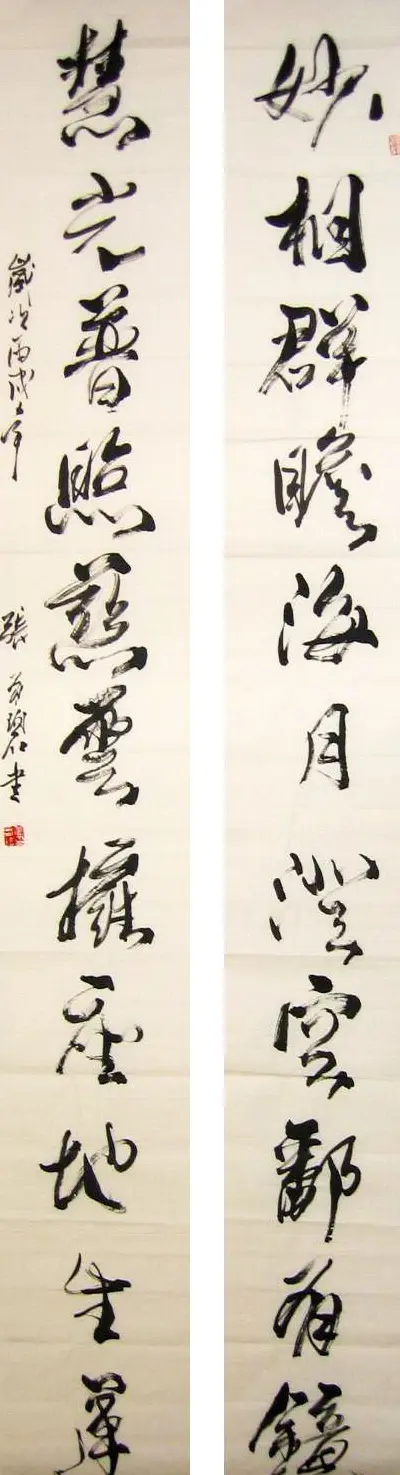 妙相群瞻海月澄空鄱有鏡
慧光普照慈雲擁座地生
歲次丙戌年
張 書